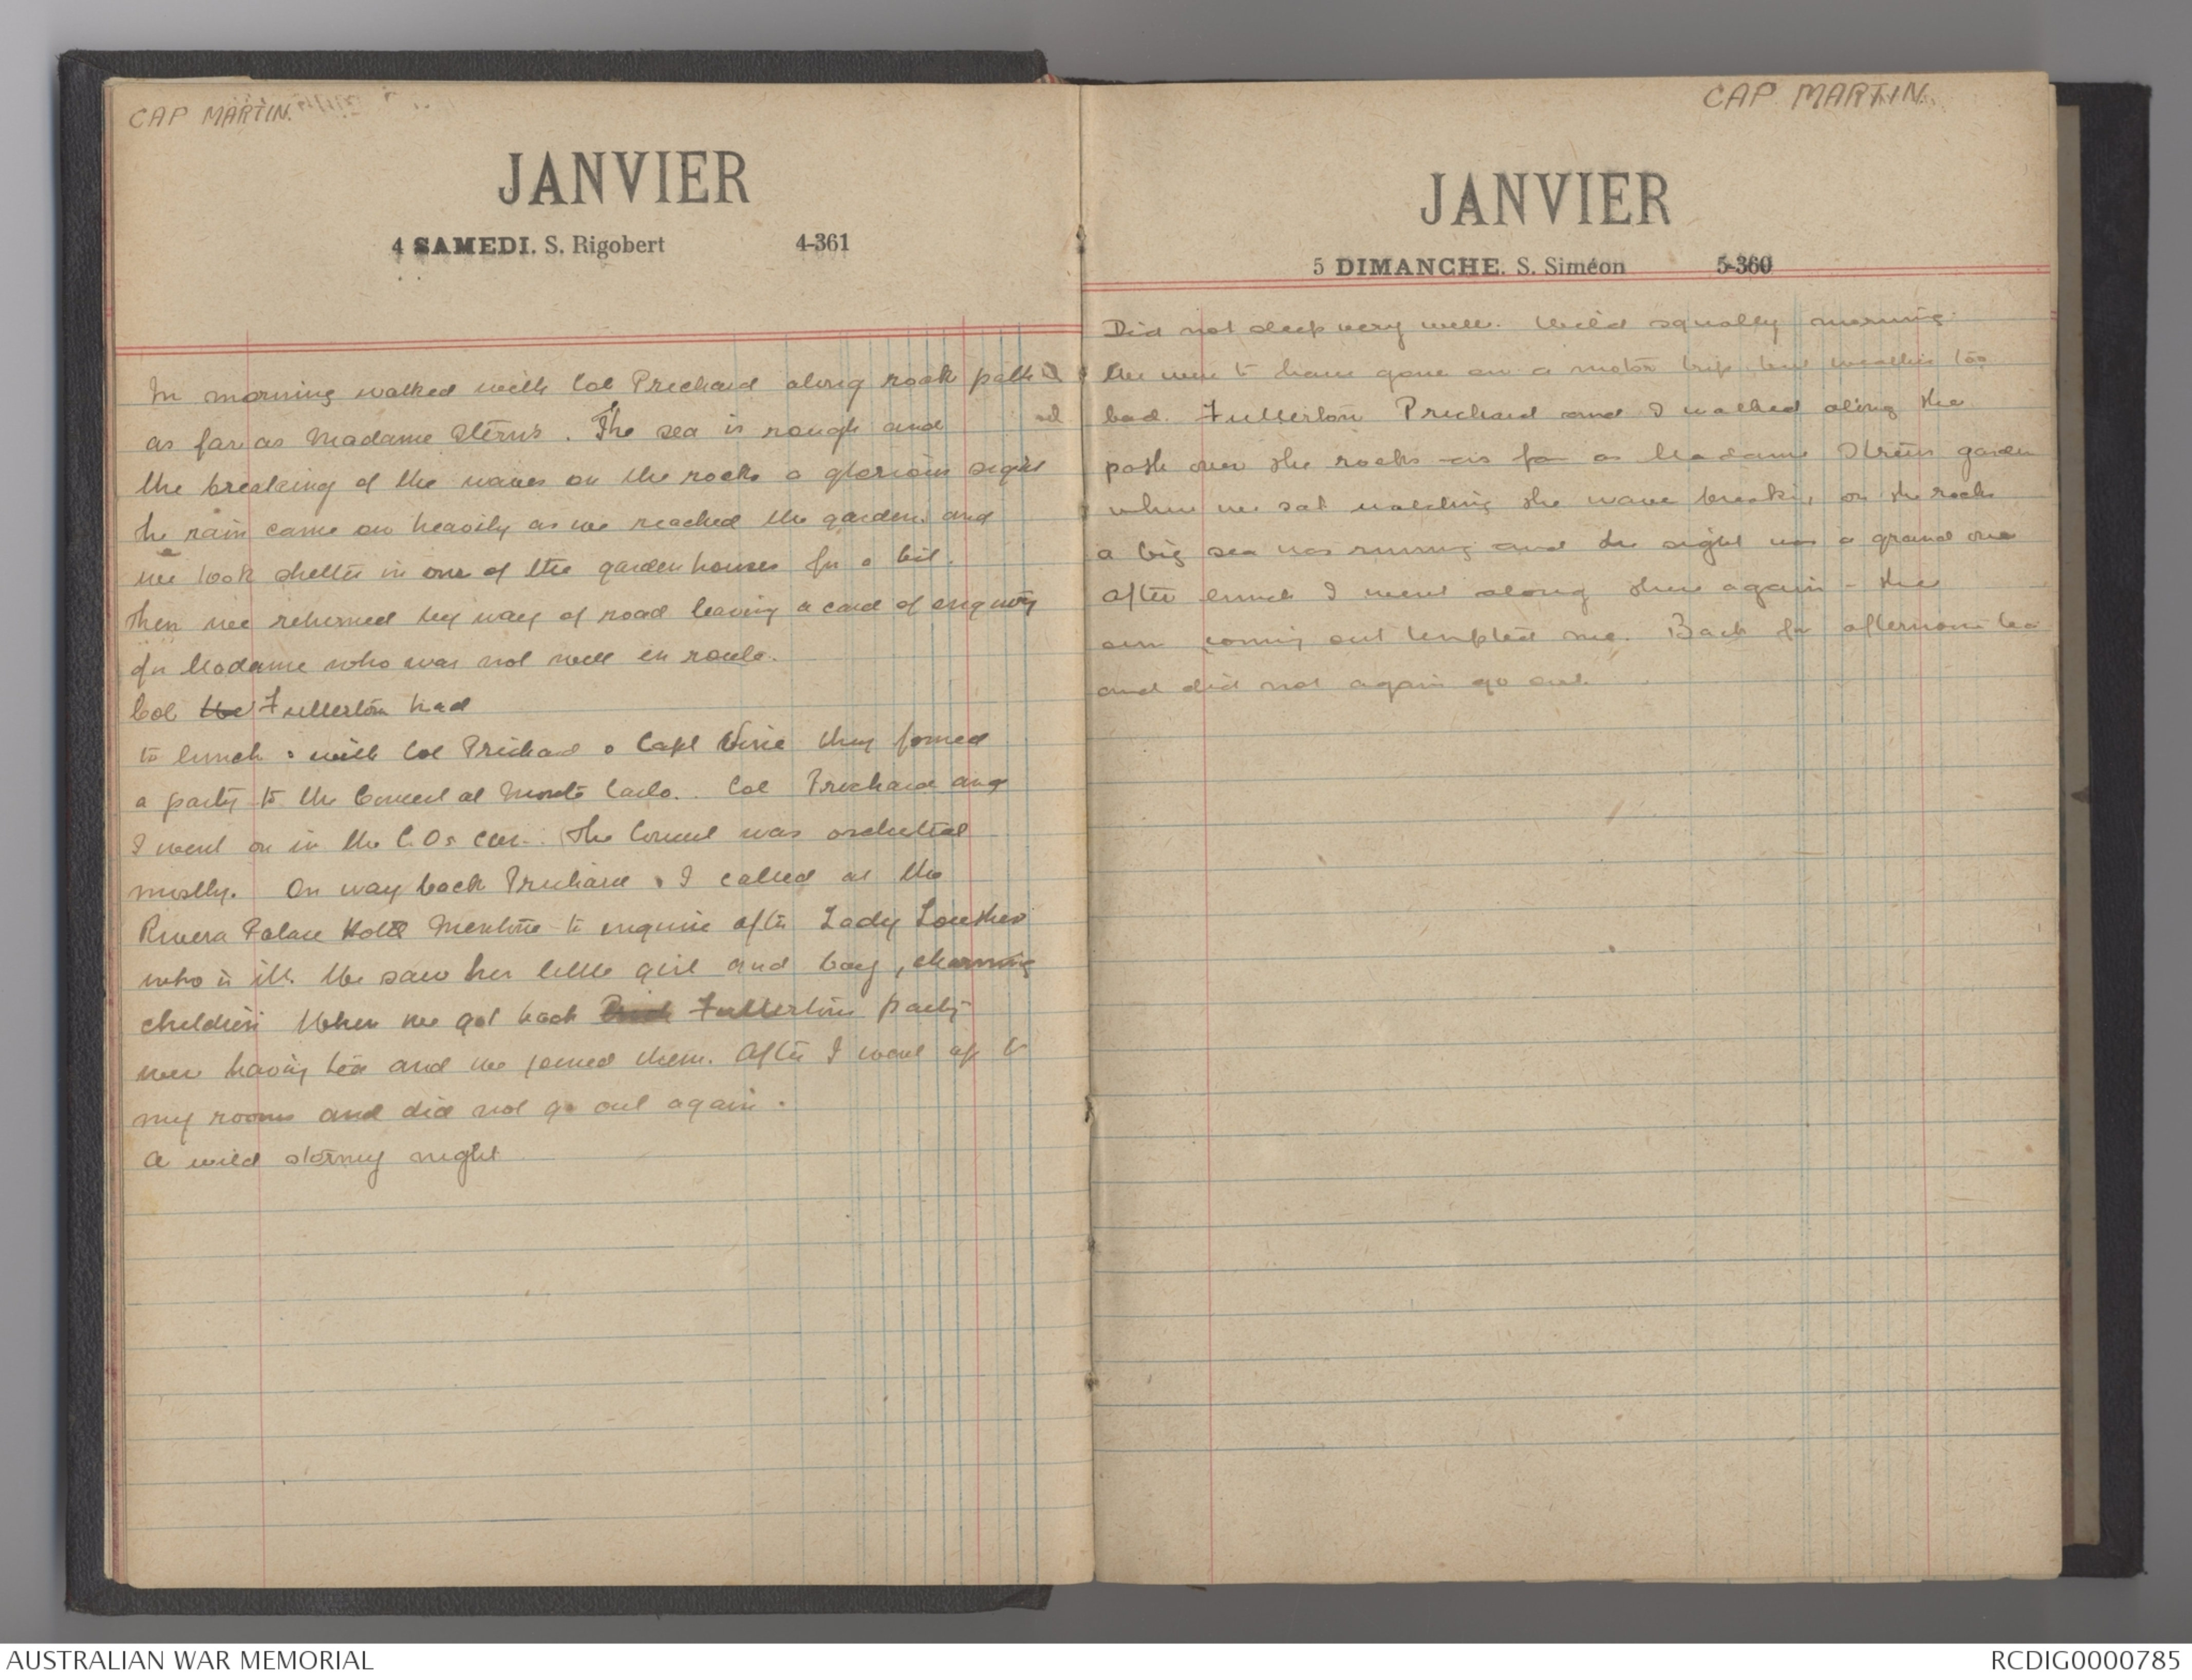 CAP MARTIN.
JANVIER
4 SAMEDI. S. Rigobert 4-361
In morning walked with Col Prichard along rock path
as far as Madame Sterns. The sea is rough and
the breaking of the waves on the rocks a glorious sight
the rain came on heavily as we reached the garden and
we took shelter in one of the garden houses for a bit.
Then we returned by way of road leaving a card of enquiry
for Madame who was not well en route.
Col Fullerton had
to lunch & with Col Prichard & Capt they formed
a party to the Concert at Monte Carlo. Col Prichard and
I went on in the C.Os car. The Concert was orchestral
mostly. On way back Prichard & I called at the
Rivera Palace Hotel Mentone to enquire after Lady Lowther
who is ill. We saw her little girl and boy, charming
children When we got back Fullertons party
were having tea and we joined them. After I went up to
my rooms and did not go out again.
A wild stormy night
CAP MARTIN.
JANVIER
5 DIMANCHE. S. Siméon 5-360
Did not sleep very well. Wild squally morning.
We were to have gone on a motor trip but weather too
bad. Fullerton Prichard and I walked along the
path over the rocks as far as Madame Sterns garden
where we sat watching the wave breaking on the rocks
a big sea was running and the sight was a grand one
After lunch I went along there again - the
sun coming out tempted me. Back for afternoon tea
and did not again go out.
AUSTRALIAN WAR MEMORIAL
RCDIG0000785